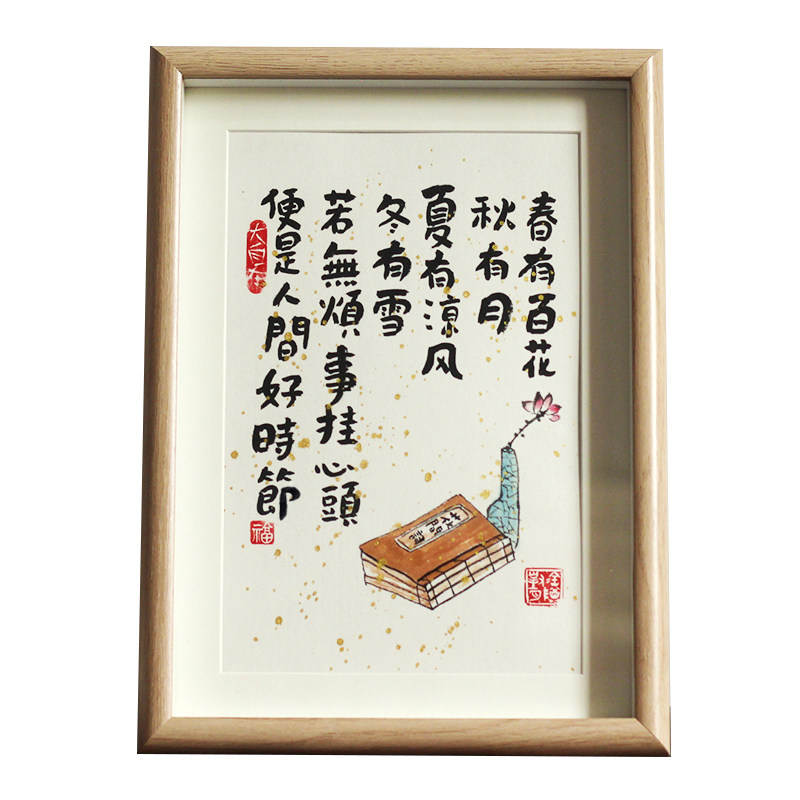 春有百花
秋有月
夏有涼风
冬有雪
若無煩事挂心頭
便是人間好時節
大自在
福